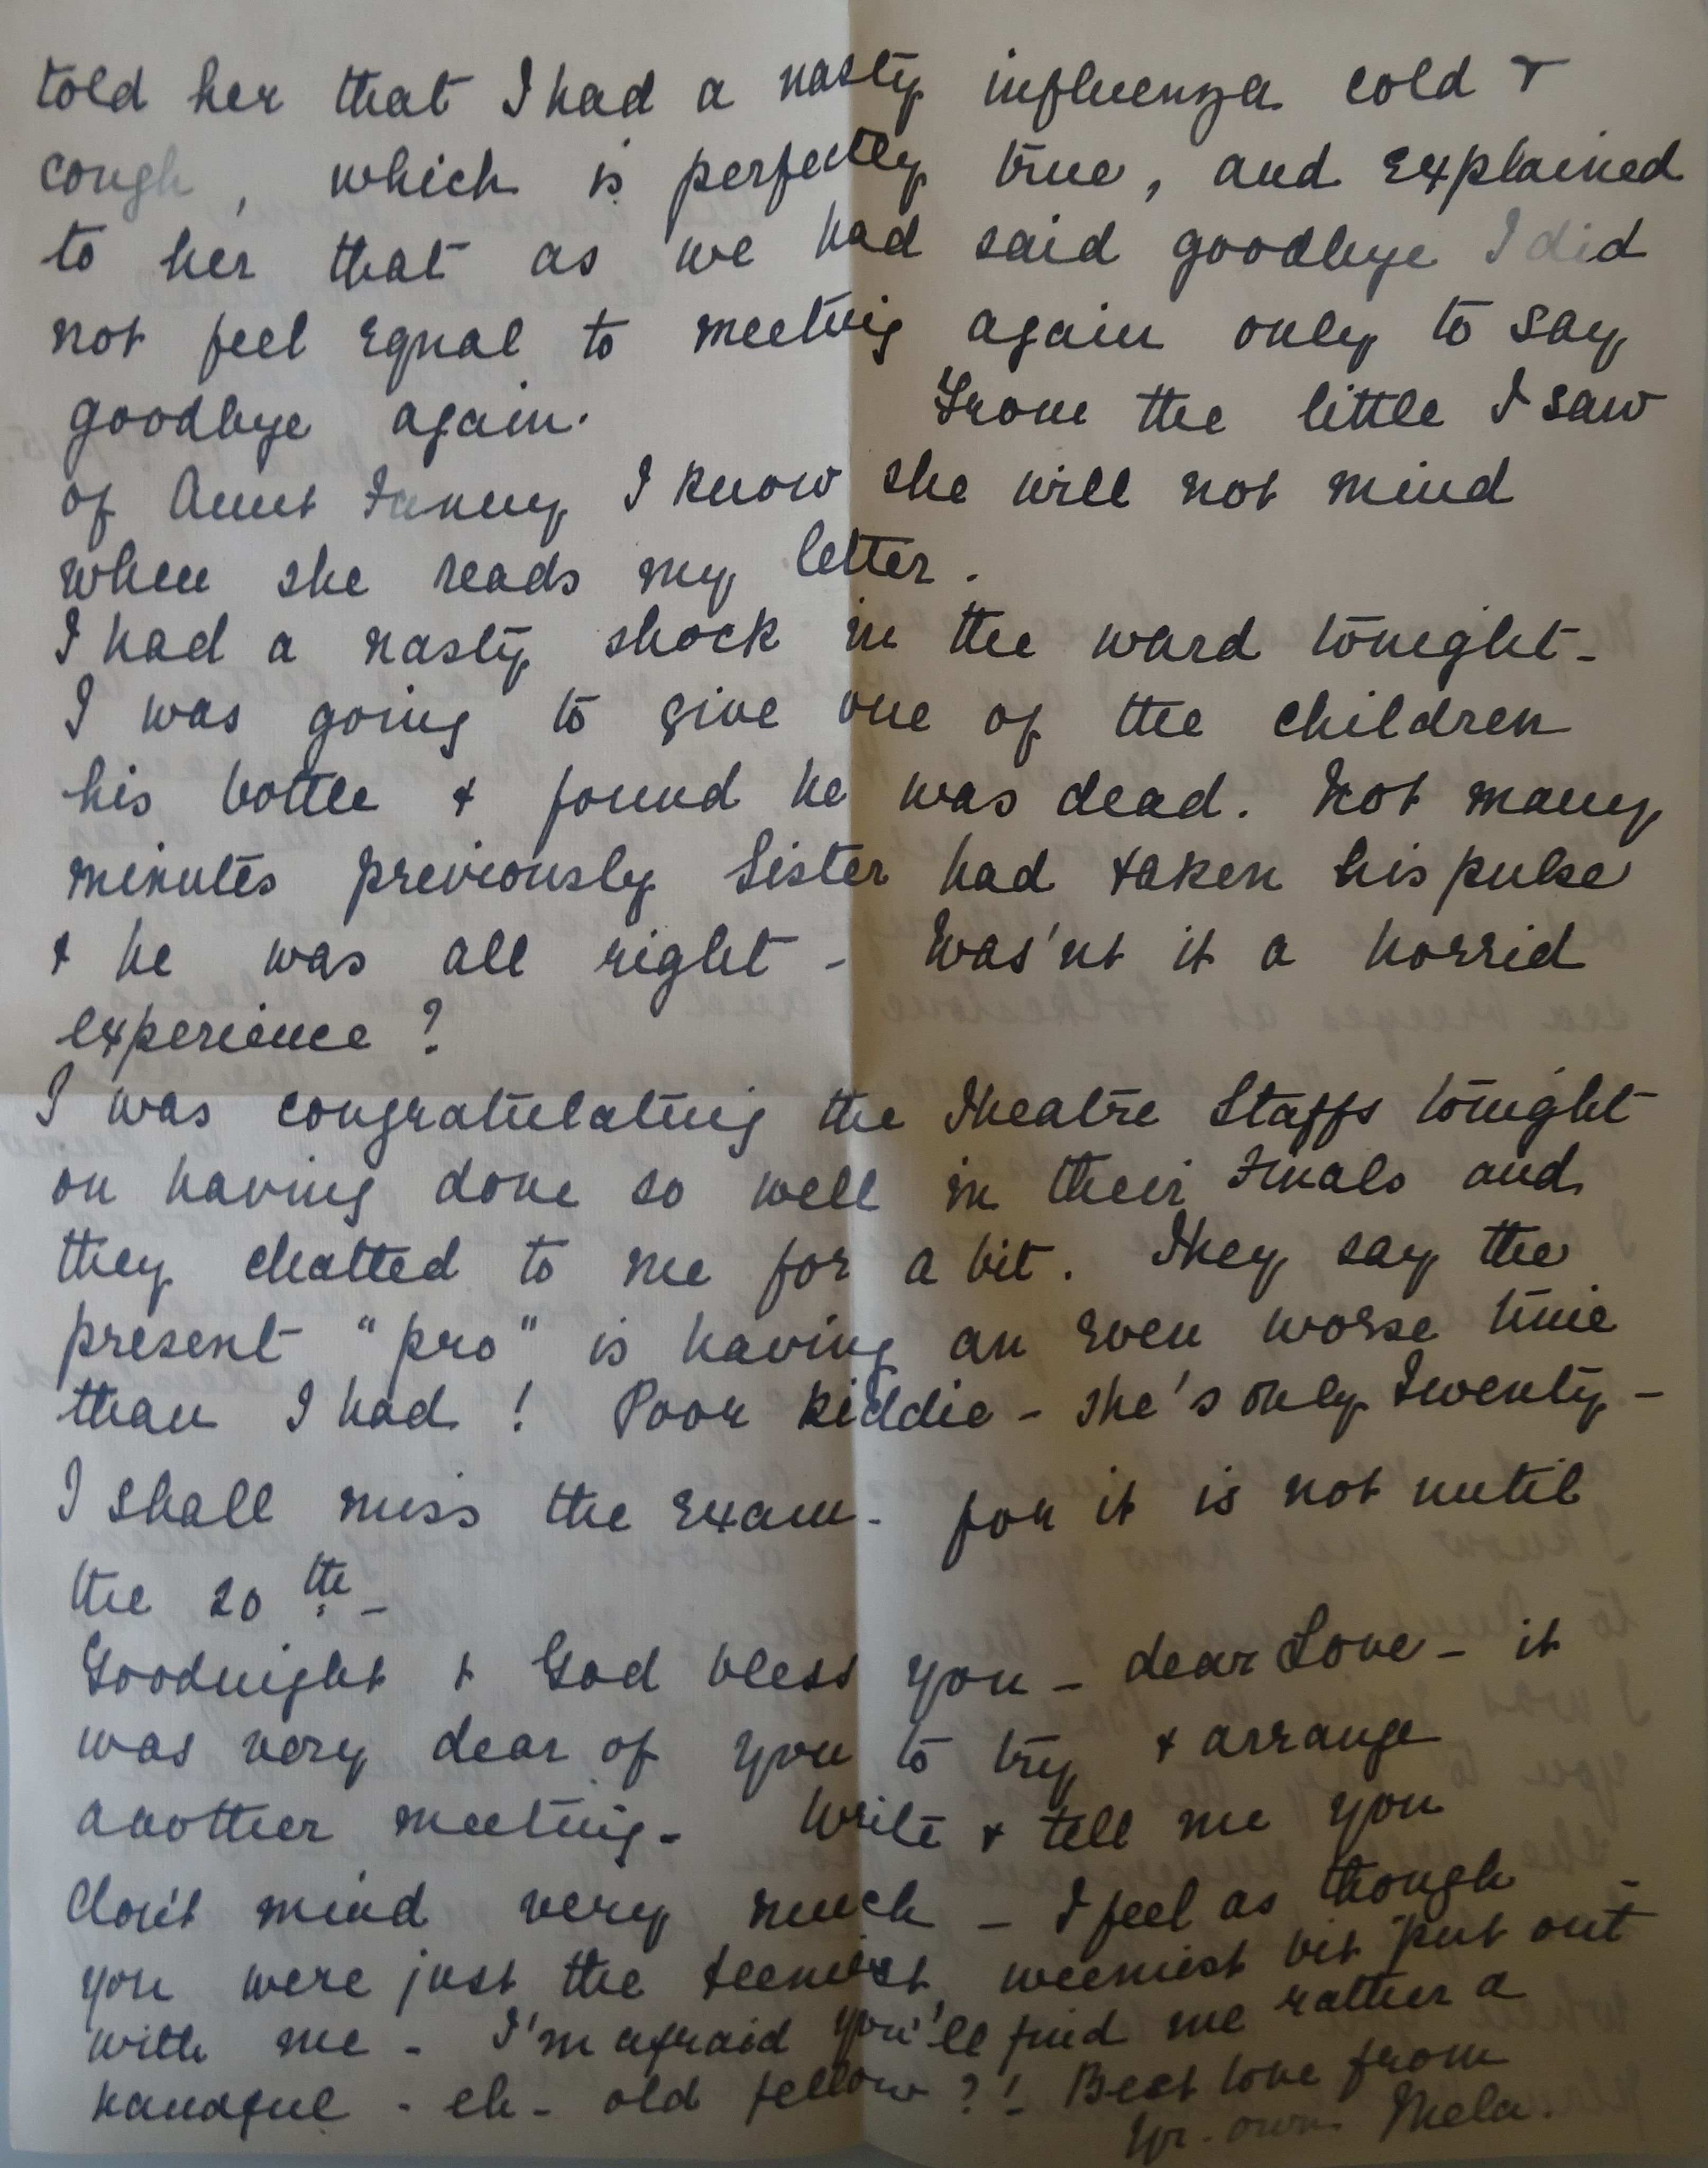 told her that I had a nasty influenza cold &
cough, which is perfectly true, and explained
to her that as we had said goodbye I did
not feel equal to meeting again only to say
goodbye again. From the little I saw
of Aunt Fanny I know she will not mind
when she reads my letter.
I had a nasty shock in the ward tonight -
I was going to give one of the children
his bottle & found he was dead. Not many
minutes previously Sister had taken his pulse
& he was all right - Was'nt it a horrid
experience?
I was congratulating the Theatre Staffs tonight
on having done so well in their Finals and
they chatted to me for a bit. They say the
present "pro" is having an even worse time
than I had! Poor kiddie - she's only Twenty -
I shall miss the exam - for it is not until
the 20th -
Goodnight & God bless you - dear Love - it
was very dear of you to try & arrange
another meeting - Write & tell me you
don't mind very much - I feel as though
you were just the teeniest weeniest bit "put out"
with me - I'm afraid you'll find me rather a
handful - eh - old fellow?! Best love from
Yr. own Mela.